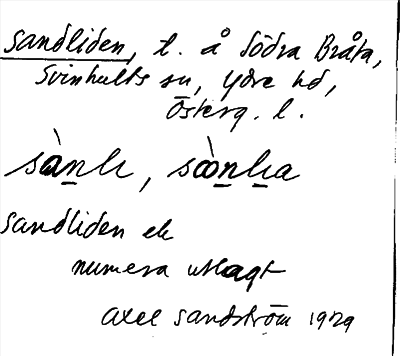 Sandliden, t. å Södra Bråta,
Svinhults sn, Ydre hd,
Österg. l.
Sandliden
numera utlagt
Axel Sandström 1929